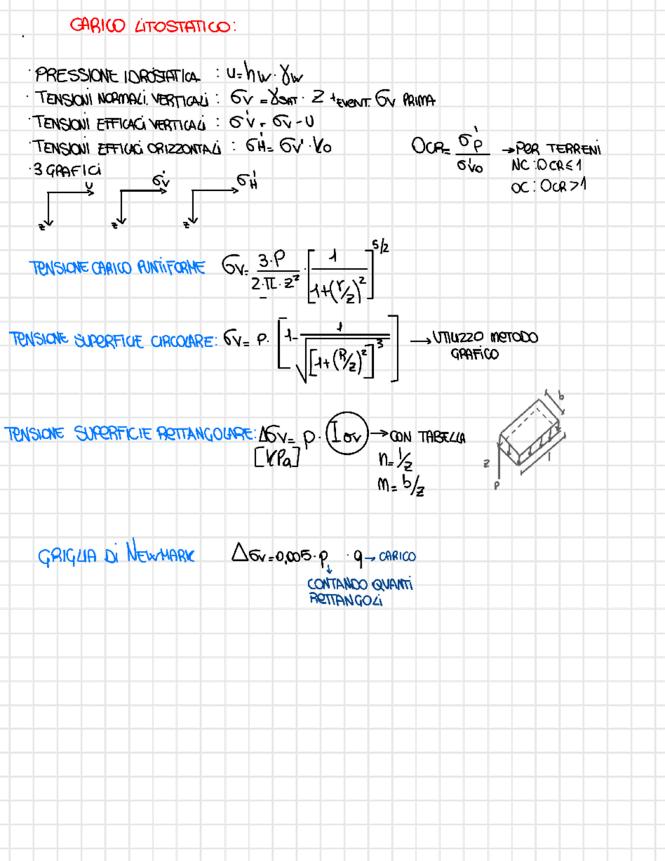 CARICO LITOSTATICO:
· PRESSIONE IDROSTATICA : u = hw · γw
· TENSIONI NORMALI VERTICALI : σv = γsat · z + EVENT. σv PRIMA
· TENSIONI EFFICACI VERTICALI : σ'v = σv - u
· TENSIONI EFFICACI ORIZZONTALI : σ'H = σv' · K0
OCR = σ'p / σ'v0 → PER TERRENI
NC : OCR ≤ 1
OC : OCR > 1
· 3 GRAFICI
u σ'v σ'H
z z z
TENSIONE CARICO PUNTIFORME σv = 3·P / 2·π·z² · [1 / 1+(r/z)²]^5/2
TENSIONE SUPERFICE CIRCOLARE: σv = p · [1 - 1 / √[1+(R/z)²]³] → UTILIZZO METODO
GRAFICO
TENSIONE SUPERFICIE RETTANGOLARE: Δσv = p · Iσv → CON TABELLA
[KPa]
n = l/z
m = b/z
b
z
l
P
GRIGLIA DI NEWMARK Δσv = 0,005 · p · q → CARICO
↓
CONTANDO QUANTI
RETTANGOLI